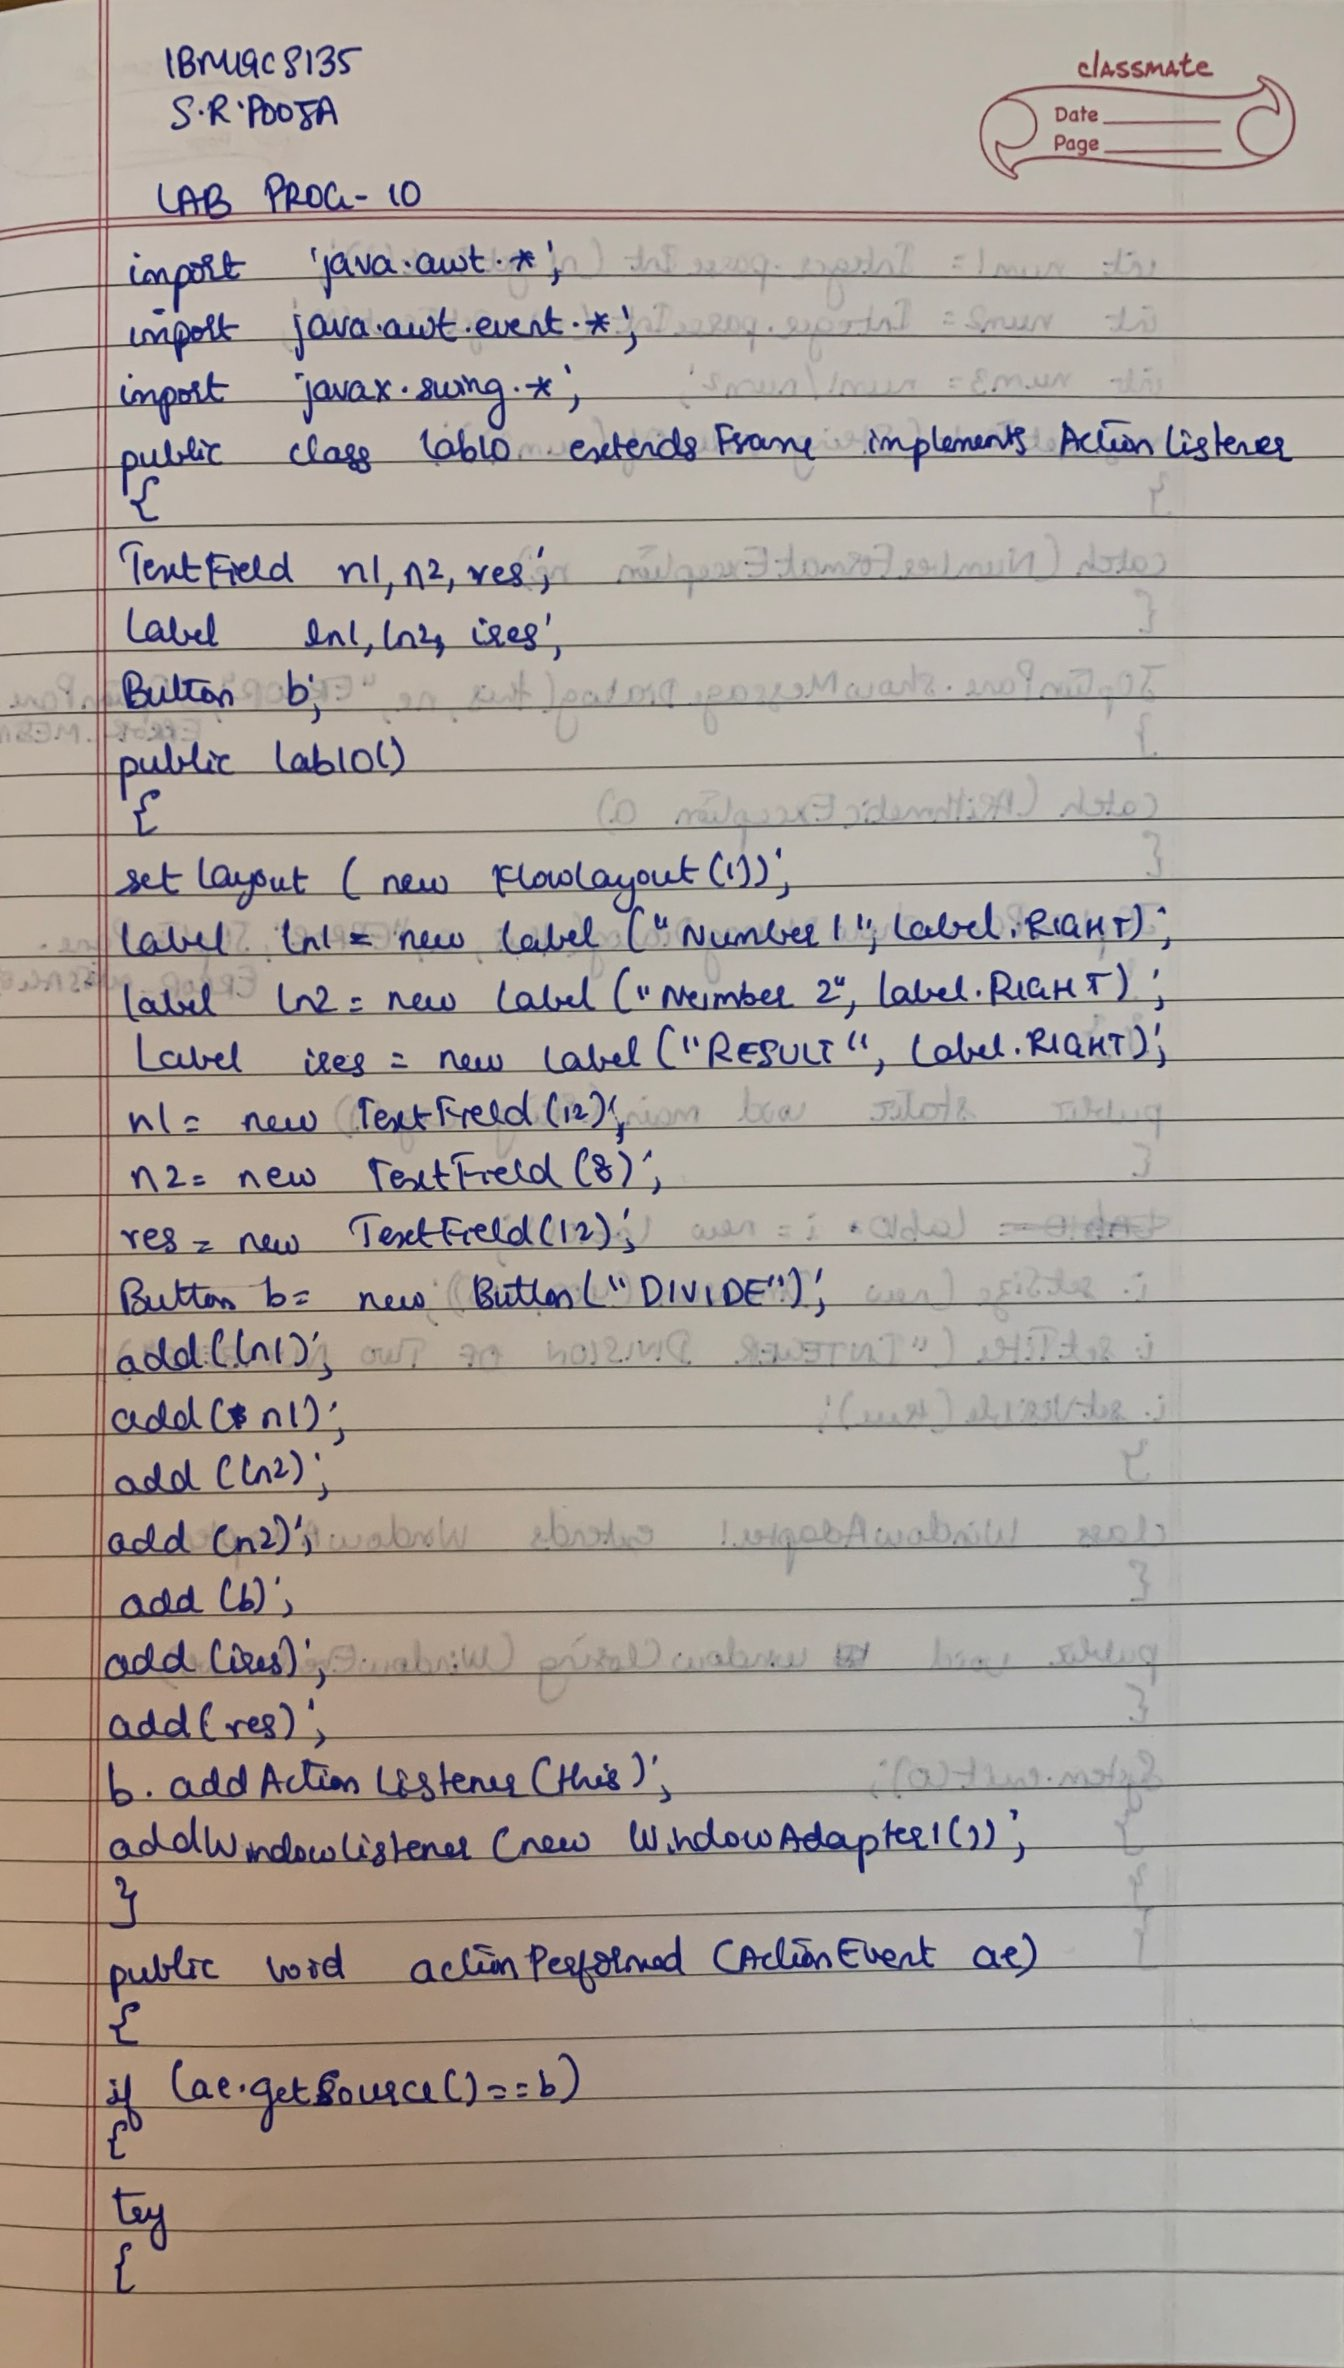 1BM19CS135
S.R.POOJA
classmate
Date
Page
LAB PROG-10
import java.awt.*;
import java.awt.event.*;
import javax.swing.*;
public class lab10 extends Frame implements ActionListener
{
TextField n1, n2, res;
Label ln1, ln2, ires;
Button b;
public lab10()
{
setLayout (new FlowLayout());
label ln1 = new label ("Number 1", label.RIGHT);
label ln2 = new label ("Number 2", label.RIGHT);
Label ires = new label ("RESULT", Label.RIGHT);
n1 = new TextField(12);
n2 = new TextField(8);
res = new TextField(12);
Button b = new Button("DIVIDE");
add(ln1);
add(n1);
add(ln2);
add(n2);
add(b);
add(ires);
add(res);
b.addActionListener(this);
addWindowListener(new WindowAdapter1());
}
public void actionPerformed (ActionEvent ae)
{
if (ae.getSource()==b)
{
try
{